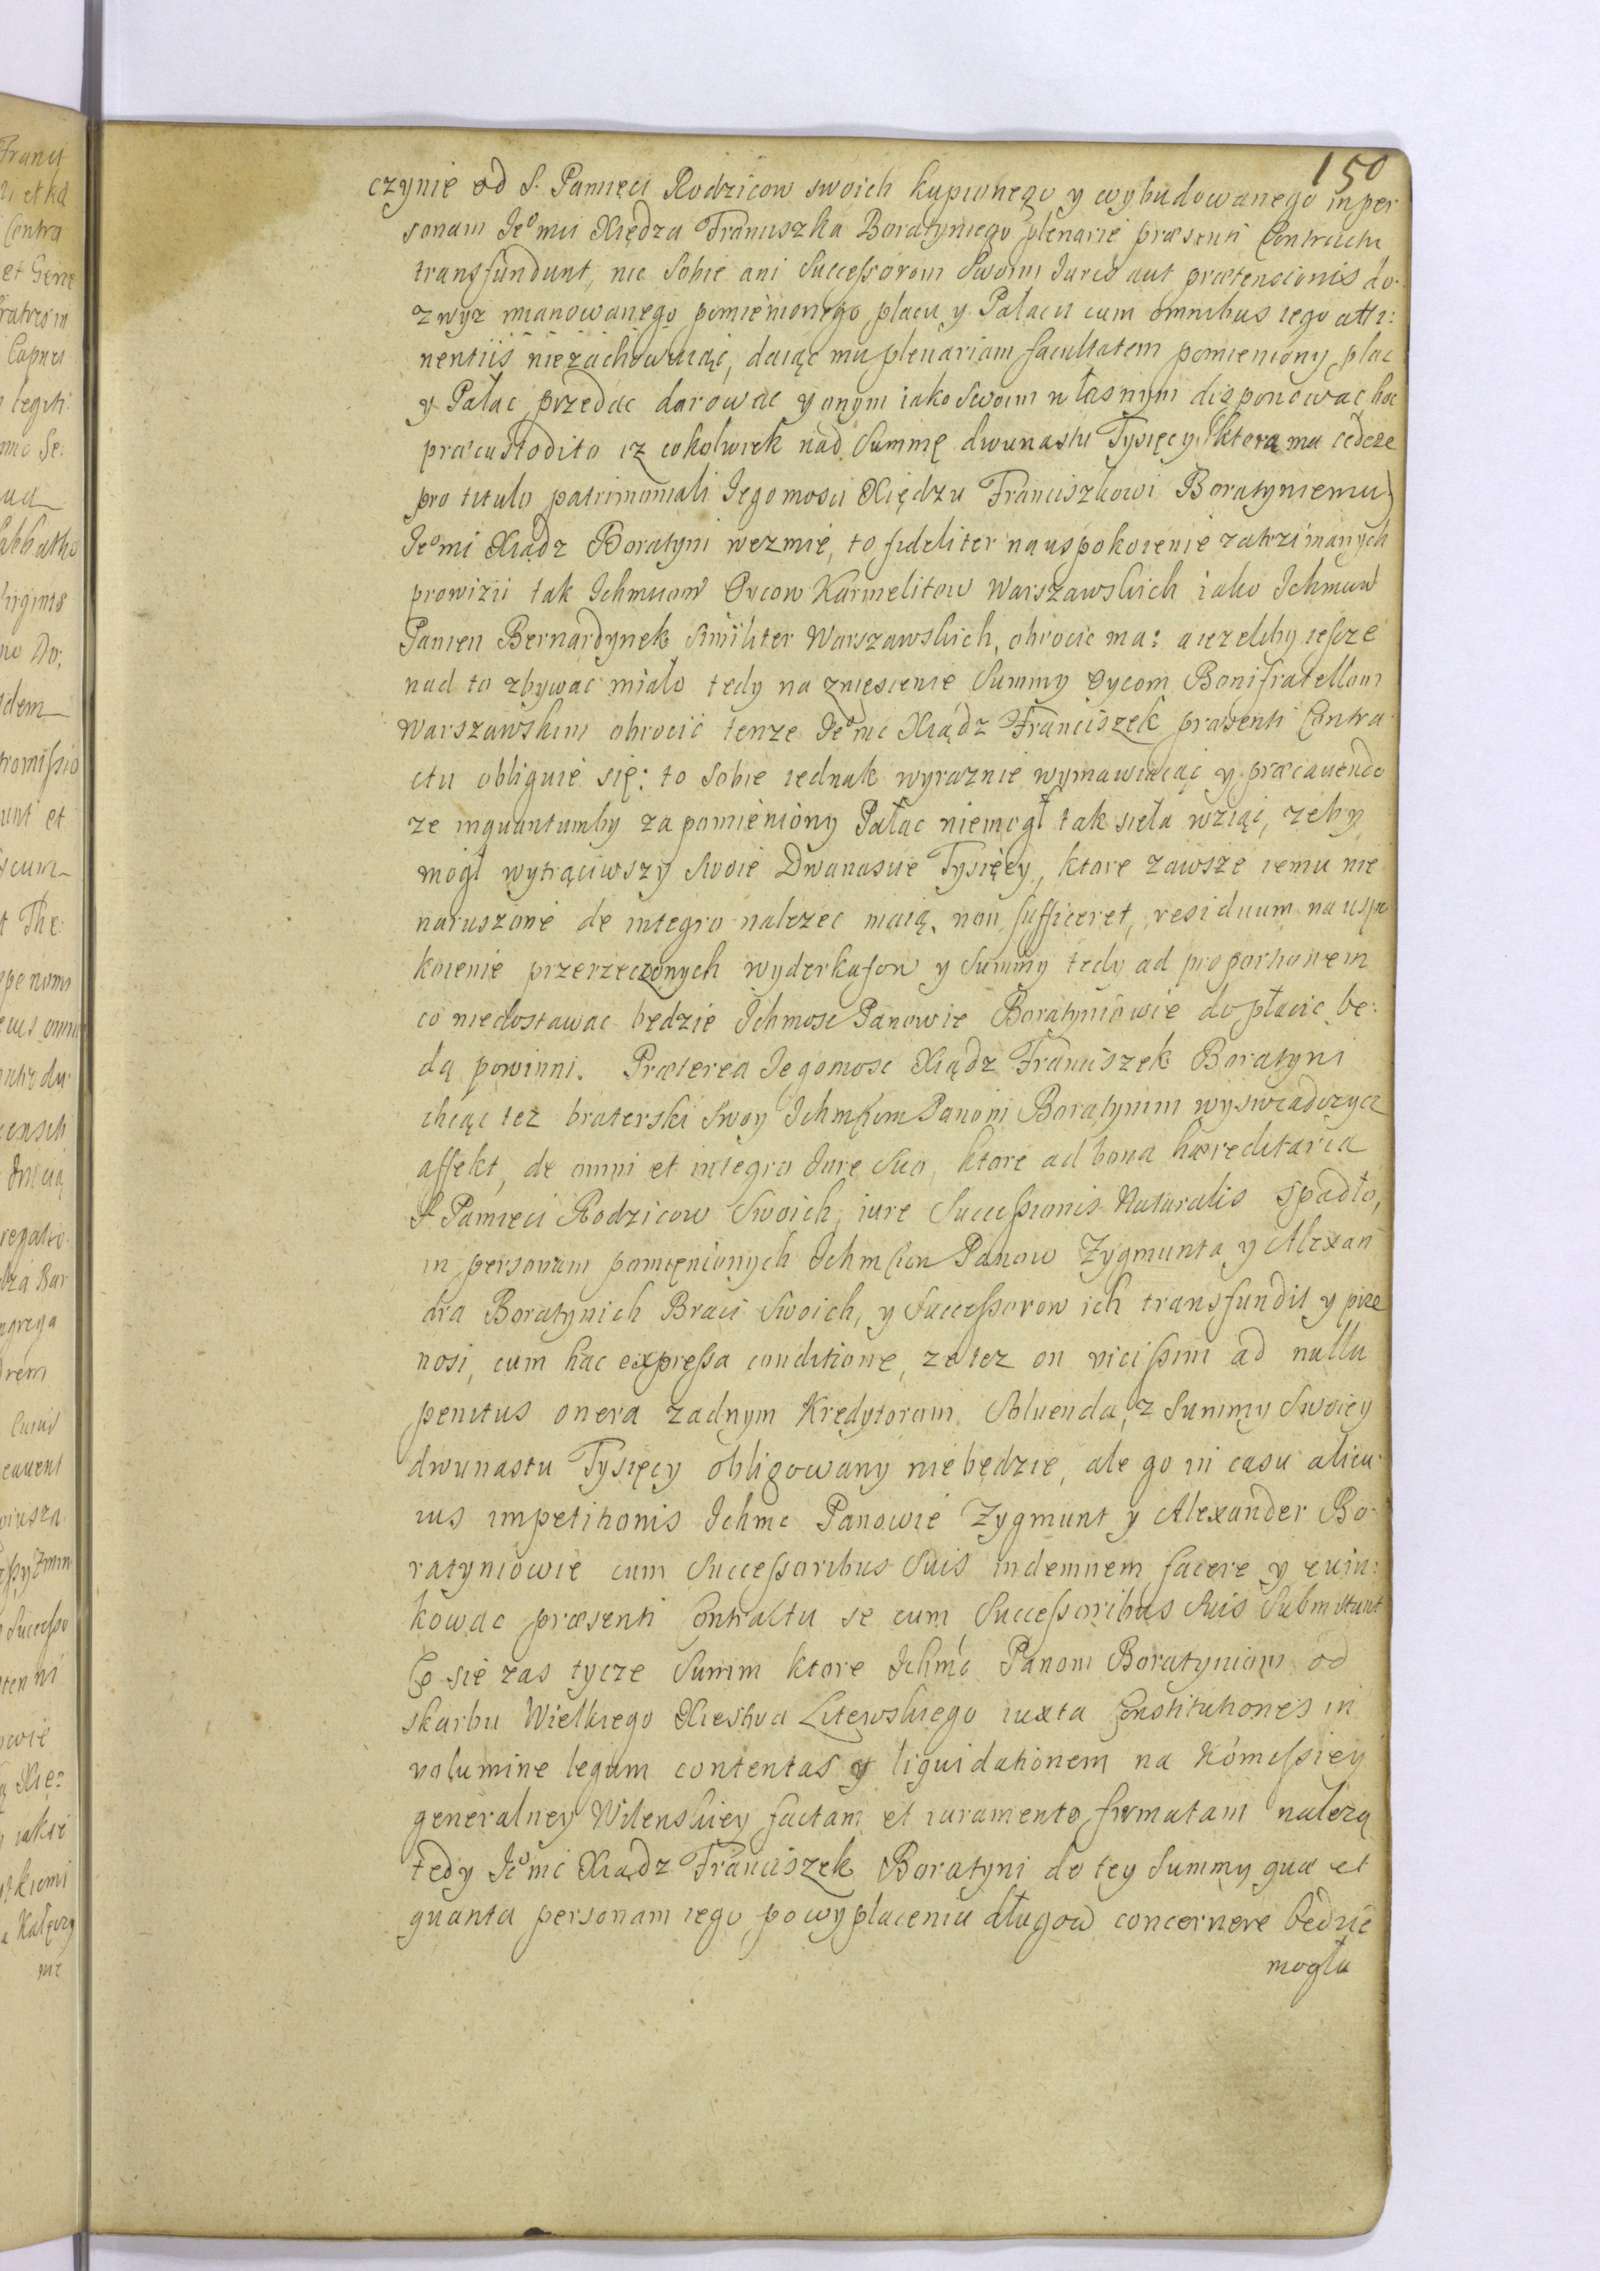 150
czynie od S. Pamięci Rodzicow swoich kupionego y wybudowanego in per
sonam Jeo mci Xiędza Franciszka Boratyniego plenarie præsenti Contractu
transfundunt, nic sobie ani Successorom Swoim Juris aut prætensionis do
zwyz mianowanego pomienionego placu y Pałacu cum omnibus iego atti:
nentiis niezachowuiąć, daiąc mu plenariam facultatem pomieniony plac
y Pałac przedac darowac y onym iako Swoim własnym disponowac hoc
præcustodito iz cokolwiek nad Summę dwunastu Tysięcy (ktora mu cedcze
pro titulo patrimoniali Jegomosci Xiędzu Franciszkowi Boratyniemu)
Jeomi Xiądz Boratyni wezmie, to fideliter na uspokoienie zatrzimanych
prowizii tak Ichmciow Oycow Karmelitow Warszawskich iako Ichmciow
Panien Bernardynek Similiter Warszawskich, obrocic ma: a iezeliby iescze
nad to zbywac miało tedy na zniesienie Summy Oycom Bonifratellom
Warszawskim obrocić tenze Jeomc Xiądz Franciszek præsenti Contra
ctu obliguie się: to Sobie iednak wyraznie wymawiaiąc y præcavendo
ze inquantumby za pomieniony Pałac niemogł tak siela wziąć, zeby
mogł wytrąciwszy Swoie Dwanascie Tysięcy, ktore zawsze iemu nie
naruszone de integro nalezec maią, non sufficeret, residuum na uspo
koienie przerzeczonych wyderkafow y Summy tedy ad proportionem
co niedostawac będzie Ichmosc Panowie Boratyniowie dopłacic bę:
dą powinni. Præterea Jegomosc Xiądz Franciszek Boratyni
chcąc tez braterski Swoy Ichmciom Panom Boratynim wyswiadczycz
affekt, de omni et integro Jure Suo, ktore ad bona hæreditaria
S. Pamięci Rodzicow Swoich, iure Successionis Naturalis spadło,
in personam pomienionych Ichmciow Panow Zygmunta y Alexan
dra Boratynich Braci Swoich, y Successorow ich transfundit y prze
nosi, cum hac expressa conditione, ze tez on vicissim ad nulla
penitus onera zadnym Kredytorom Soluenda, z Summy Swoiey
dwunastu Tysięcy obligowany niebędzie, ale go in casu alicu
ius impetitionis Ichmc Panowie Zygmunt y Alexander Bo
ratyniowie cum Successoribus Suis indemnem facere y ewin:
kowac præsenti Contractu se cum Successoribus Suis Submittunt
Co się zas tycze Summ ktore Ichmć Panom Boratyniom od
skarbu Wielkiego Xiestwa Litewskiego iuxta Constitutiones in
volumine legum contentas y liquidationem na Komissiey
generalney Wilenskiey factam et iuramento firmatam nalezą
tedy Jeomć Xiądz Franciszek Boratyni do tey Summy quæ et
quanta personam iego po wypłaceniu długow concernere będzie
mogła